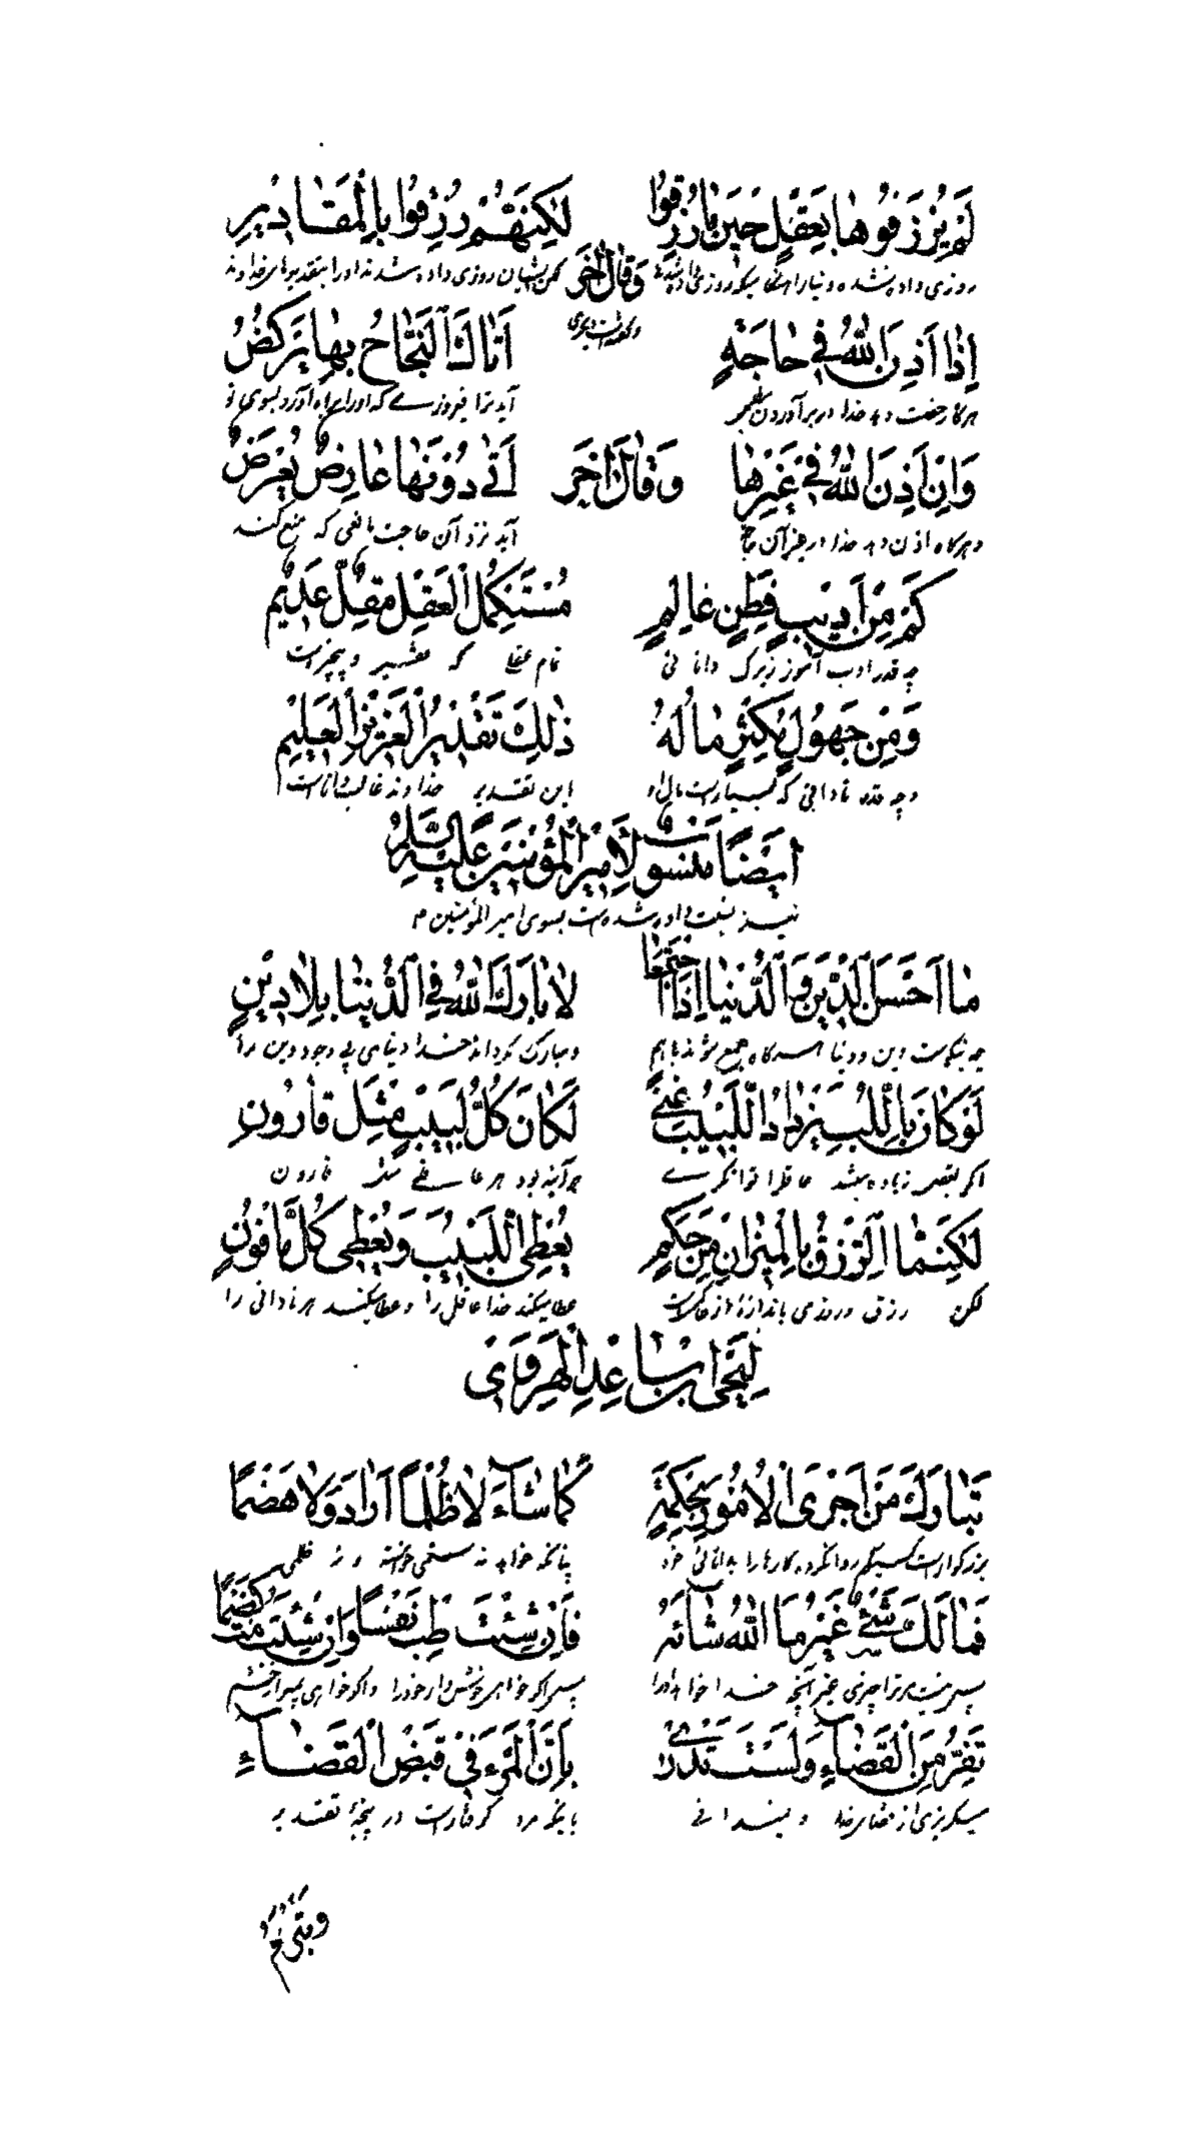 لَمْ يُرْزَقُوهَا بِعَقْلٍ حِيْنَ مَا رُزِقُوا لٰكِنَّهُمْ رُزِقُوا بِالْمَقَادِيْرِ
روزی داده نشده دنیا را وَقَالَ اٰخَر لکن ایشان روزی داده شدند او را بتقدیر خداوند
وگفته است دیگری
اِذَا اَذِنَ اللهُ فِي حَاجَةٍ اَتَاكَ النَّجَاحُ بِهَا يَرْكَضُ
هرگاه رخصت دهد خدا در برآوردن آید ترا فیروزی که او را براه آورد بسوی تو
وَاِنْ اَذِنَ اللهُ فِي غَيْرِهَا وَقَالَ اٰخَر اَتٰى دُوْنَهَا عَارِضٌ يُعْرِضُ
وهرگاه اذن دهد خدا در غیر آن آید نزد آن حاجت مانعی که منع کند
كَمْ مِنْ اَدِيْبٍ فَطِنٍ عَالِمٍ مُسْتَكْمِلُ الْعَقْلِ مُقِلٌّ عَدِيْمٌ
چه قدر ادب آموز زیرک دانا تمام عقل که مفلس و بیچیز است
وَمِنْ جَهُوْلٍ مُكْثِرٍ مَالُهُ ذٰلِكَ تَقْدِيْرُ الْعَزِيْزِ الْعَلِيْمِ
وچه قدر نادانی که بسیار است مال او این تقدیر خداوند غالب دانا است
اَيْضًا مَنْسُوْبٌ لِاَمِيْرِ الْمُؤْمِنِيْنَ عَلَيْهِ السَّلَامُ
نیز نسبت داده شده است بسوی امیر المؤمنین ع
مَا اَحْسَنَ الدِّيْنَ وَالدُّنْيَا اِذَا اجْتَمَعَا لَا بَارَكَ اللهُ فِي الدُّنْيَا بِلَا دِيْنٍ
چه نیکوست دین و دنیا هرگاه جمع شوند باهم و مبارک نگرداند خدا دنیای بی وجود دین را
لَوْ كَانَ بِاللُّبِّ يَزْدَادُ اللَّبِيْبُ غِنًى لَكَانَ كُلُّ لَبِيْبٍ مِثْلَ قَارُوْنِ
اگر بعقل زیاده میشد عاقل را توانگری هرآینه بود هر عاقلی مثل قارون
لٰكِنَّمَا الرِّزْقُ بِالْمِيْزَانِ مِنْ حَكَمٍ يُعْطِى اللَّبِيْبَ وَيُعْطِى كُلَّ مَافُوْنِ
لکن رزق و روزی باندازه از حاکم است عطا میکند خدا عاقل را و عطا میکند هر نادانی را
لِيَحْيَى ابْنِ سَاعِدِ الْهِرَوِي
تَبَارَكَ مَنْ اَجْرَى الْاُمُوْرَ بِحِكْمَةٍ كَمَا شَاءَ لَا ظُلْمًا اَرَادَ وَلَا هَضْمًا
بزرگوار است کسیکه روا کرده کارها را بدانائی خود چنانکه خواهد نه ستمی خواسته و نه ظلمی
فَمَا لَكَ شَيْءٌ غَيْرُ مَا اللهُ شَائَهُ فَاِنْ شِئْتَ طِبْ نَفْسًا وَاِنْ شِئْتَ مُتْ كَظْمًا
پس نیست مر ترا چیزی غیر آنچه خدا خواهد او را پس اگر خواهی خوش دار خود را و اگر خواهی بمیر از خشم
تَفِرُّ مِنَ الْقَضَاءِ وَلَسْتَ تَدْرِي بِاَنَّ الْمَرْءَ فِي قَبْضِ الْقَضَاءِ
میگریزی از قضای خدا و نمیدانی باینکه مرد گرفتار است در پنجهٔ تقدیر